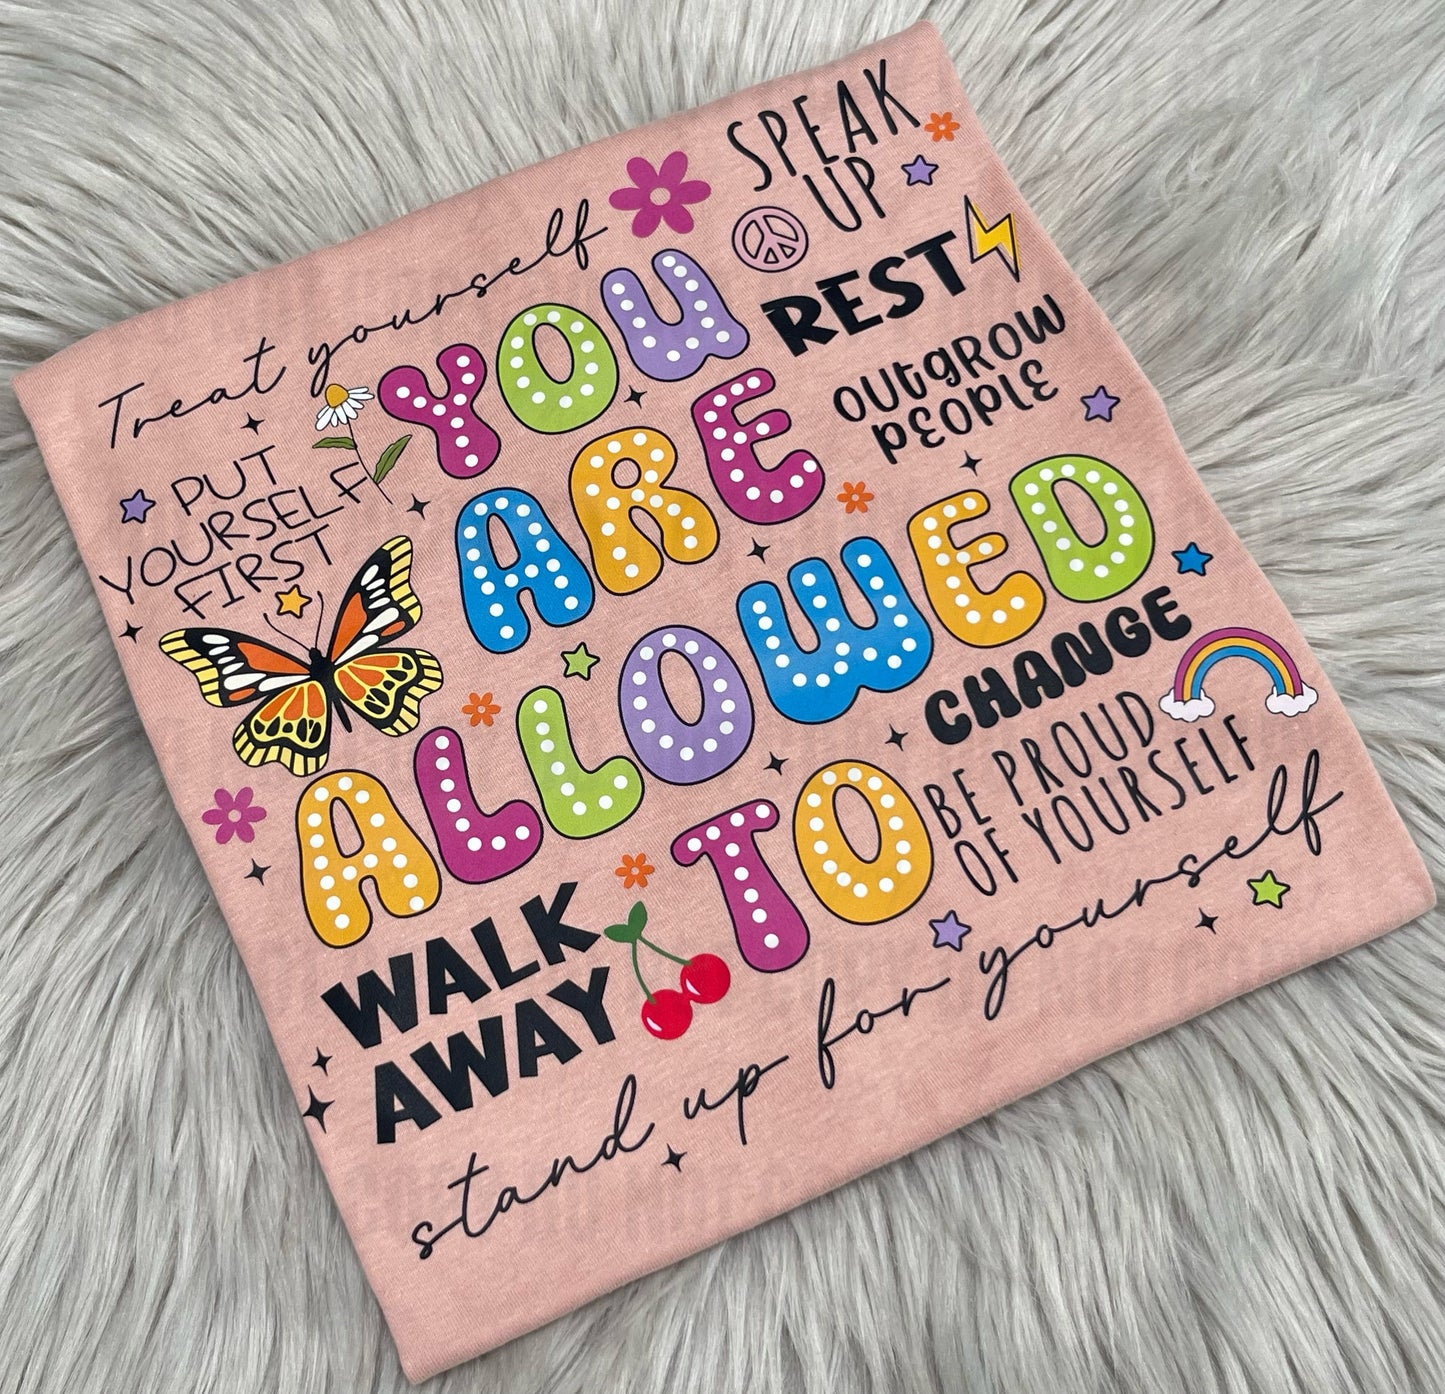 Treat yourself
SPEAK
UP
REST
OUtgROW
PEOPLE
PUT
YOURSELF
FIRST
YOU
ARE
ALLOWED
TO
CHANGE
BE PROUD
OF YOURSELF
WALK
AWAY
stand up for yourself